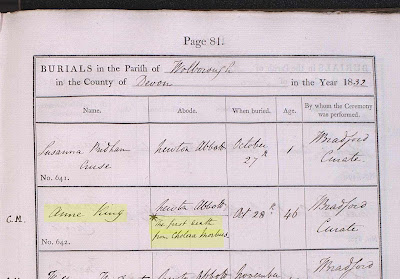 Page 81.
BURIALS in the Parish of Wolborough
in the County of Devon in the Year 1832
Name. Abode. When buried. Age. By whom the Ceremony was performed.
Susanna Pridham Cruse Newton Abbott October 27th 1 Bradford Curate
No. 641.
C.M. Anne King Newton Abbott Oct 28th 46 Bradford Curate
*The first death from Cholera Morbus
No. 642.
Newton Abbott November